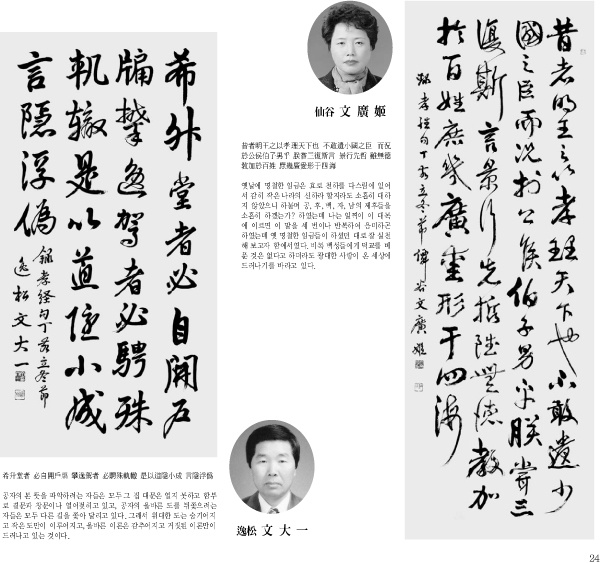 希升堂者必自開戶
牖攀逸駕者必騁殊
軌轍是以道隱小成
言隱浮僞
錄孝經句丁亥立冬節
逸松文大一
希升堂者 必自開戶牖 攀逸駕者 必騁殊軌轍 是以道隱小成 言隱浮僞
공자의 본 뜻을 파악하려는 자들은 모두 그 집 대문은 열지 못하고 함부
로 곁문과 창문이나 열어젖히고 있고, 공자의 올바른 도를 뒤쫓으려는
자들은 모두 다른 길을 쫓아 달리고 있다. 그래서 위대한 도는 숨기어지
고 작은 도만이 이루어지고, 올바른 이론은 감추어지고 거짓된 이론만이
드러나고 있는 것이다.
仙谷 文 廣 姬
昔者明王之以孝理天下也 不敢遺小國之臣 而況
於公侯伯子男乎 朕嘗三復斯言 景行先哲 雖無德
敎加於百姓 庶幾廣愛形于四海
옛날에 명철한 임금은 효로 천하를 다스림에 있어
서 감히 작은 나라의 신하라 할지라도 소홀히 대하
지 않았으니 하물며 공, 후, 백, 자, 남의 제후들을
소홀히 하겠는가? 하였는데 나는 일찍이 이 대목
에 이르면 이 말을 세 번이나 반복하여 음미하곤
하였는데 옛 명철한 임금들이 하셨던 대로 잘 실천
해 보고자 함에서였다. 비록 백성들에게 덕교를 베
푼 것은 없다고 하더라도 광대한 사랑이 온 세상에
드러나기를 바라고 있다.
逸松 文 大 一
昔者明王之以孝理天下也不敢遺小
國之臣而況於公侯伯子男乎朕嘗三
復斯言景行先哲雖無德敎加
於百姓庶幾廣愛形于四海
錄孝經句丁亥立冬節 谷文廣姬
24